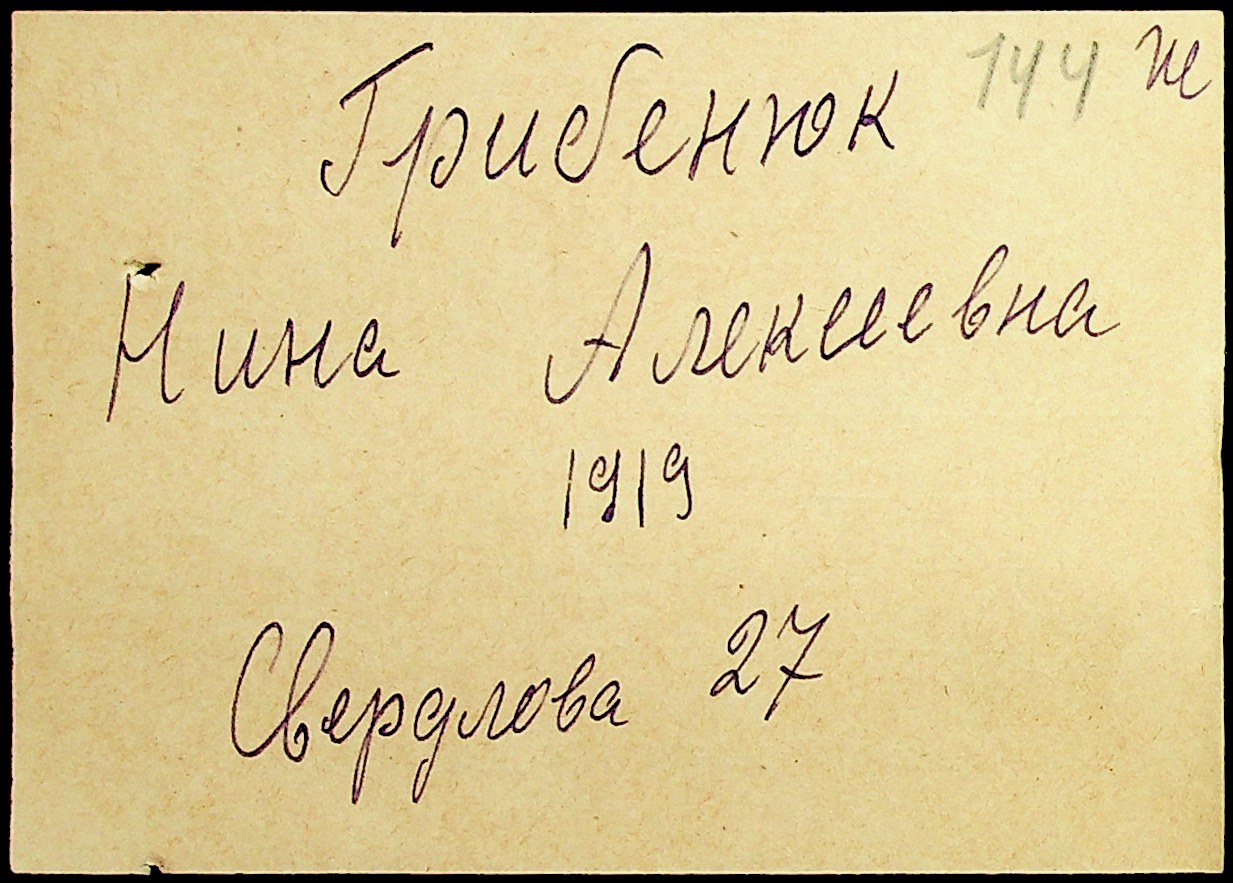 Грибенюк 144 ж
Нина Алексеевна
1919
Свердлова 27